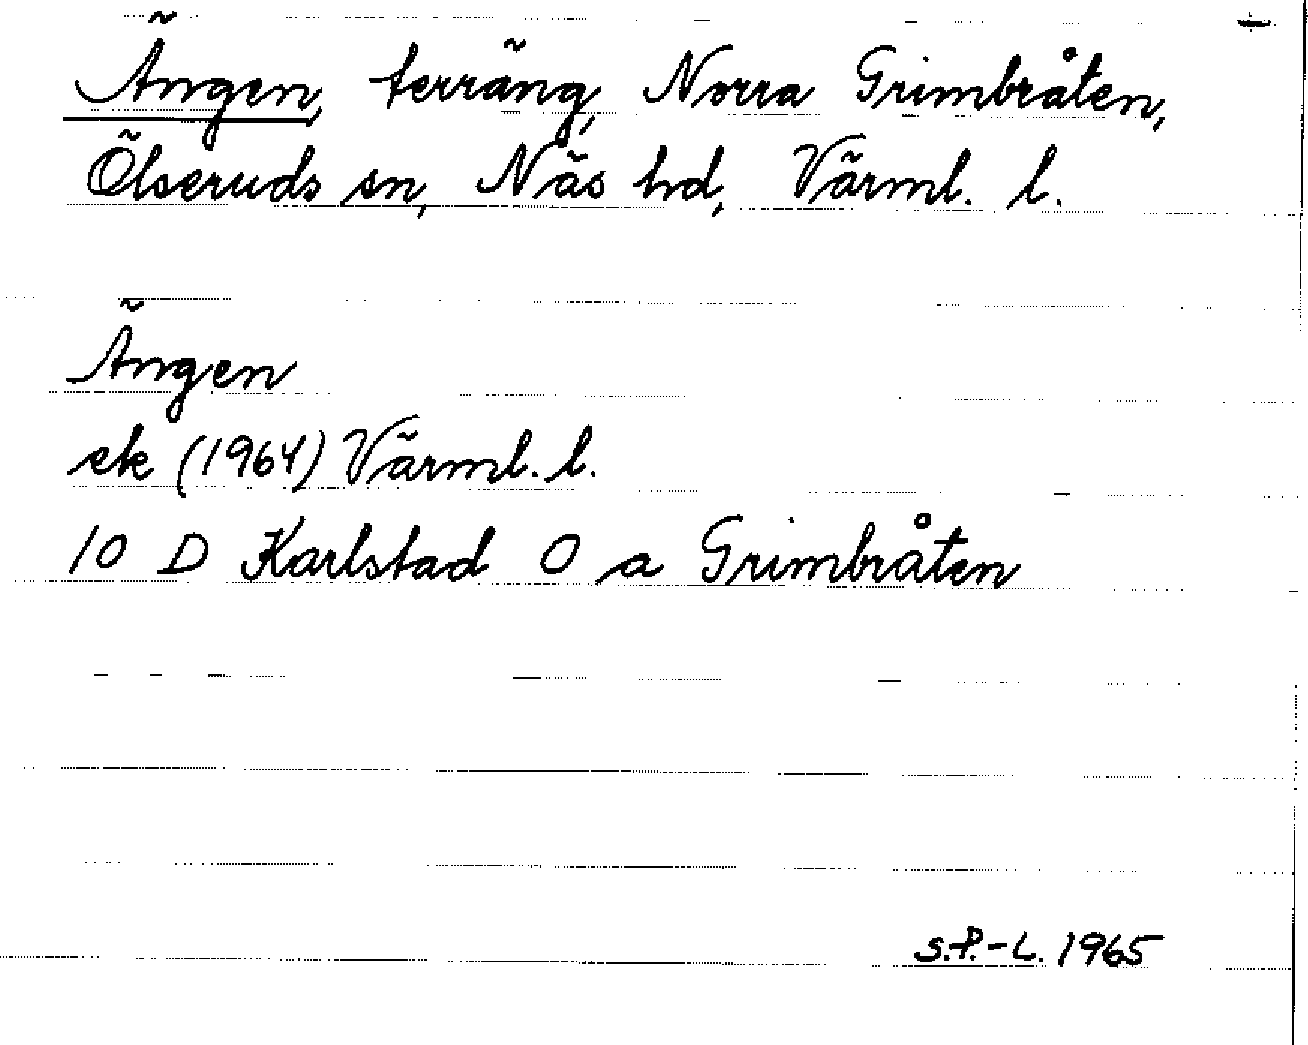 Ängen, terräng, Norra Grimbråten,
Ölseruds sn, Näs hd, Värml. l.
Ängen
ek (1964) Värml. l.
10 D Karlstad O a Grimbråten
S.P.-L. 1965